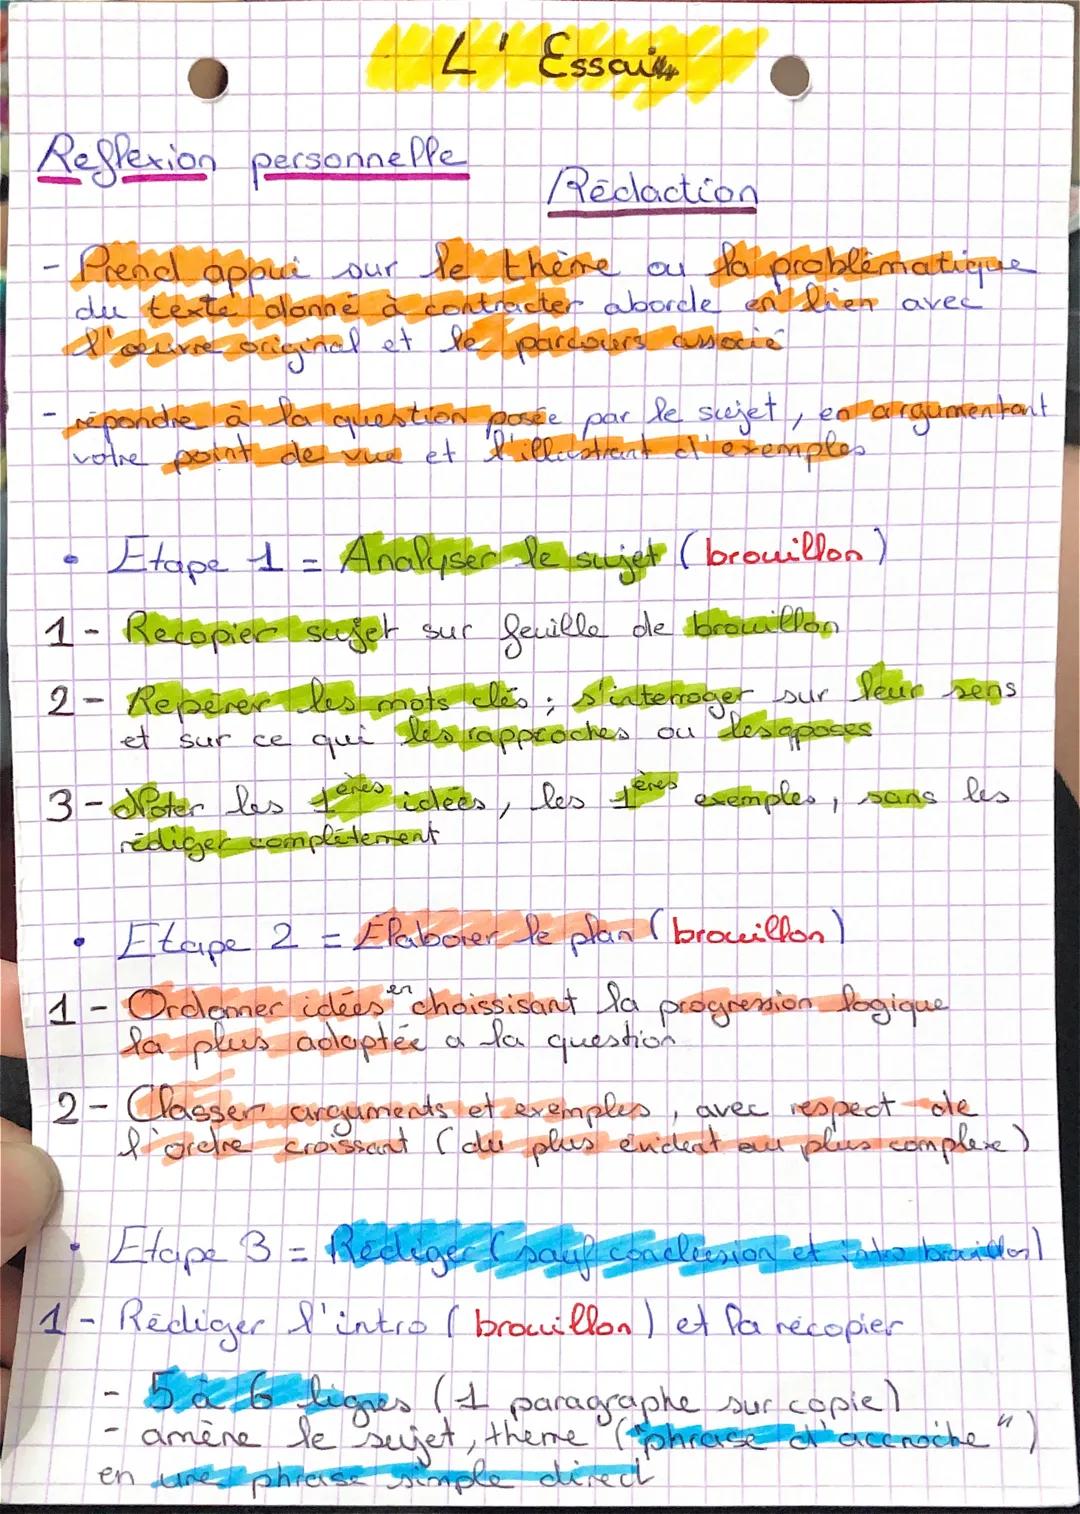 L' Essai
Reflexion personnelle
Rédaction
- Prend appui sur le thème ou la problématique
du texte donné à contracter aborde en lien avec
l'œuvre original et le parcours associé
- répondre à la question posée par le sujet, en argumentant
votre point de vue et l'illustrant d'exemples
• Etape 1 = Analyser le sujet (brouillon)
1- Recopier sujet sur feuille de brouillon
2- Repérer les mots clés ; s'interroger sur leur sens
et sur ce qui les rapproches ou les oposes
3- Noter les 1ères idées, les 1ères exemples, sans les
rédiger complètement
• Etape 2 = Elaborer le plan (brouillon)
1- Ordonner idées en choissisant la progression logique
la plus adaptée a la question
2- Classer arguments et exemples, avec respect de
l'ordre croissant (du plus évident au plus complexe)
• Etape 3 = Rédiger (sauf conclusion et intro brouillon)
1- Rédiger l'intro (brouillon) et la recopier
- 5 à 6 lignes (1 paragraphe sur copie)
- amène le sujet, theme ("phrase d'accroche")
en une phrase simple direct